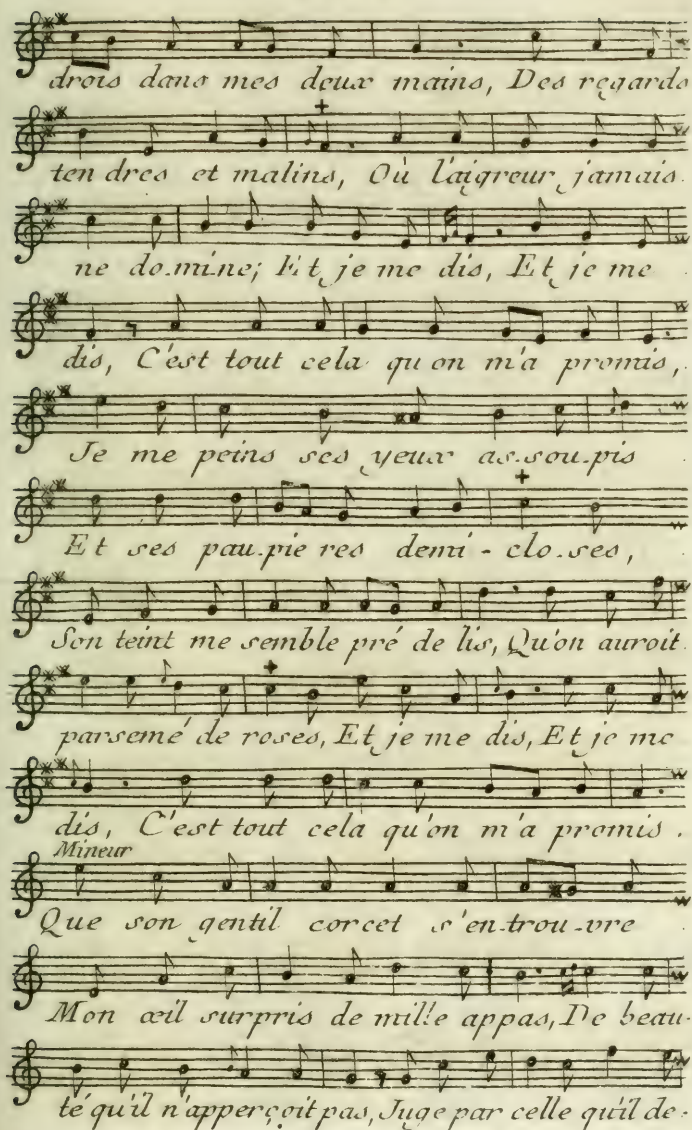 drois dans mes deux mains, Des regards
ten dres et malins, Où l'aigreur jamais
ne do-mi-ne; Et je me dis, Et je me
dis, C'est tout cela qu'on m'a promis,
Je me peins ses yeux as-sou-pis
Et ses pau-pie res demi-clo-ses,
Son teint me semble pré de lis, Qu'on auroit
parsemé de roses, Et je me dis, Et je me
dis, C'est tout cela qu'on m'a promis.
Mineur
Que son gentil corcet s'en-trou-vre
Mon œil surpris de mille appas, De beau-
té qu'il n'apperçoit pas, Juge par celle qu'il de-